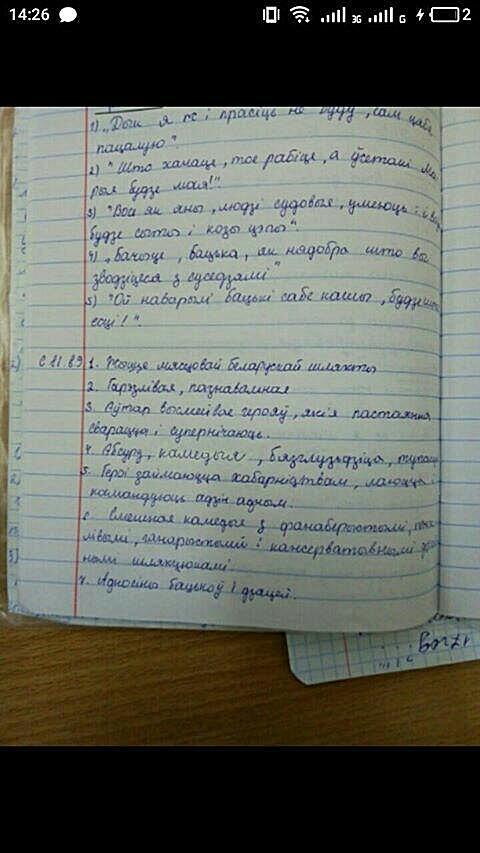 14:26
3G
G
2
1) „Дык я ж і прасіць не буду, сам цябе
пацалую".
2) "Што хочаце, тое рабіце, а ўсетакі Ма-
рыя будзе мая!".
3) "Вось як яны, людзі судовыя, умеюць: і воўк
будзе сыты і козы цэлы".
4) „Бачыце, бацька, як нядобра што вы
зводзіцеся з суседзямі"
5) "Ой наварылі бацькі сабе кашы, будуць
есці!".
с 11.89 1. Жыццё мясцовай беларускай шляхты
2. Гарэзлівая, пазнавальная
3. Аўтар высмейвае герояў, якія пастаянна
сварацца і супернічаюць.
4. Абсурд, камедыя, бязглуздзіца,
5. Героі займаюцца хабарніцтвам, лаюцца і
камандуюць адзін адным.
6. Смешная камедыя з фанаберыстымі,
лівымі, ганарыстымі і кансерватыўнымі
нымі шляхцюкамі
7. Адносіны бацькоў і дзяцей.